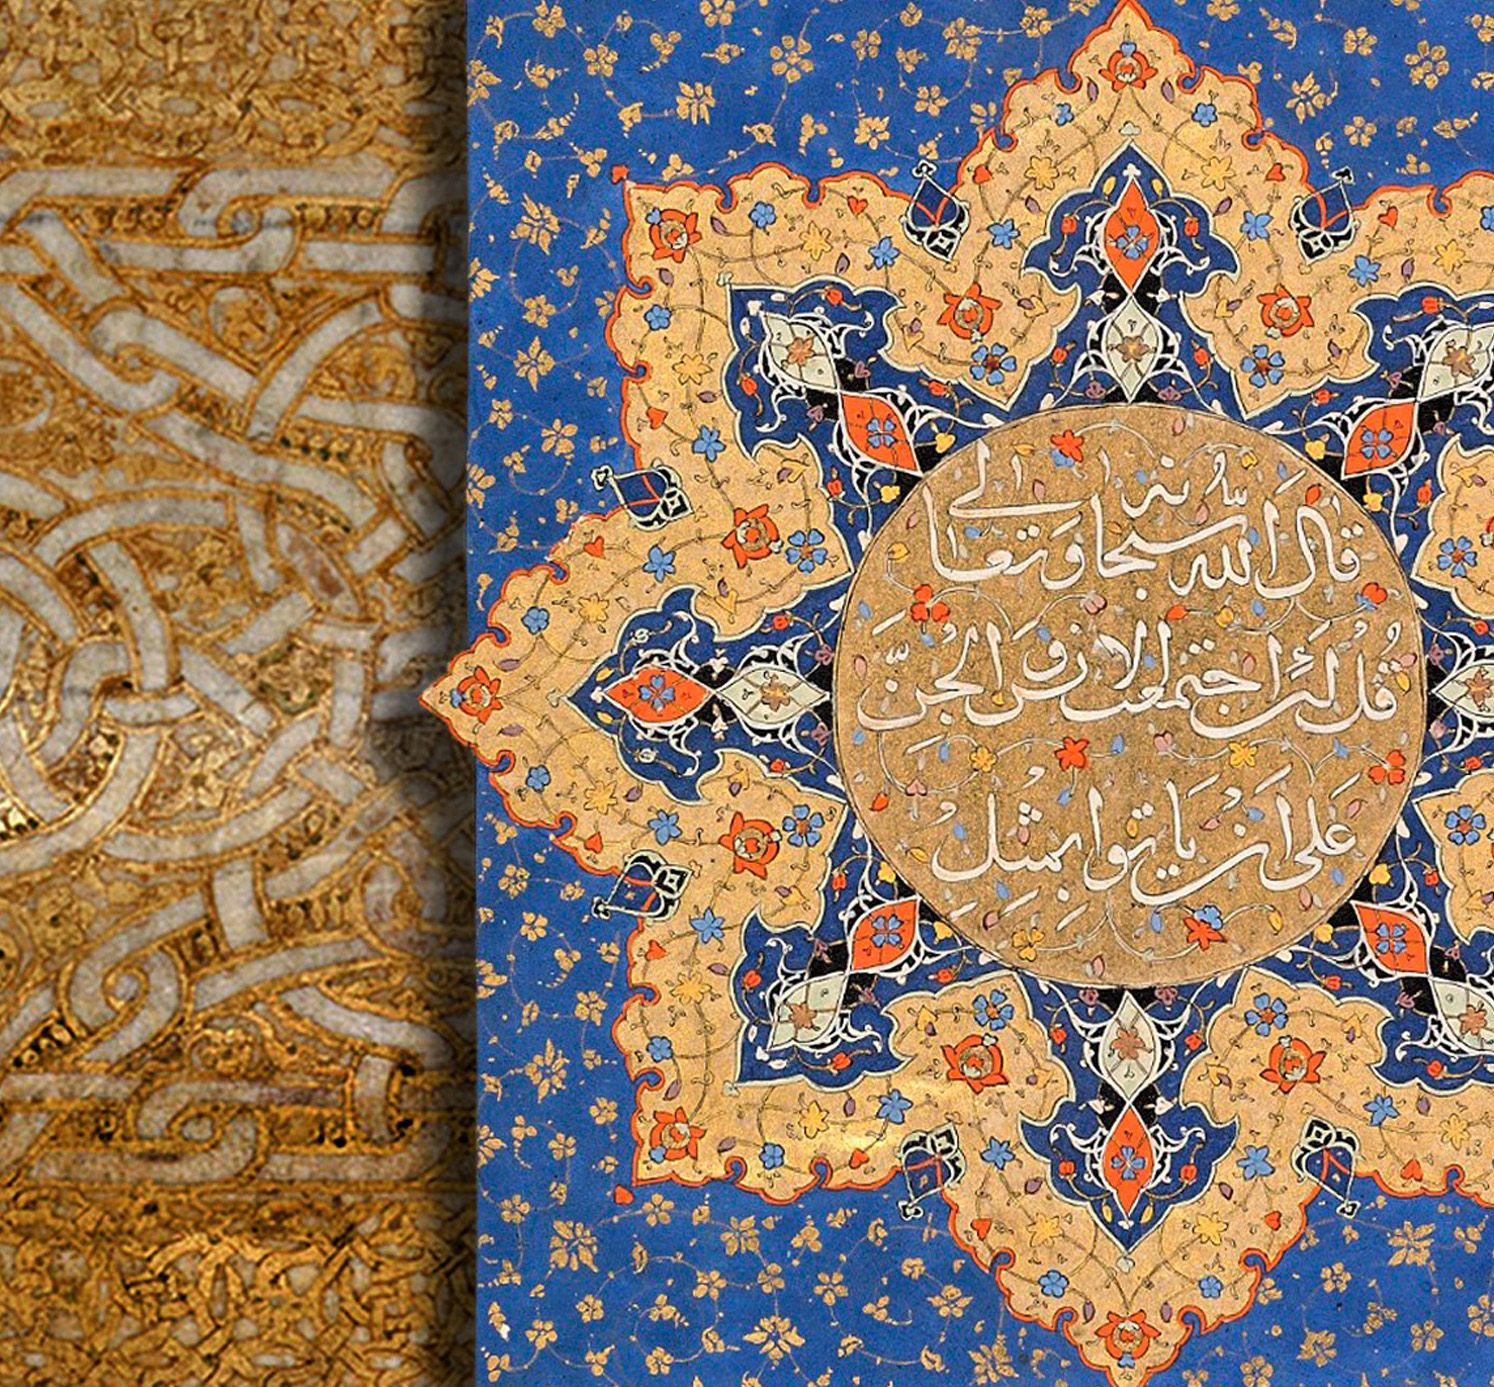 قَالَ الله سُبحانه وَتعالى
قُل لَئن اجتمعت الانس وَالجُنّ
عَلى اَنْ يَاتوا بمثلُ